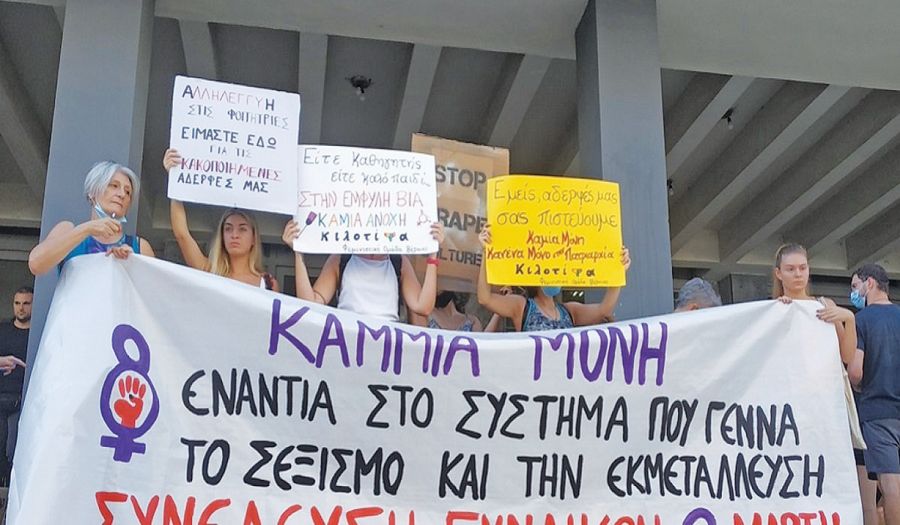 ΑΛΛΗΛΕΓΓΥΗ
ΣΤΙΣ ΦΟΙΤΗΤΡΙΕΣ
ΕΙΜΑΣΤΕ ΕΔΩ
ΓΙΑ ΤΙΣ
ΚΑΚΟΠΟΙΗΜΕΝΕΣ
ΑΔΕΡΦΕΣ ΜΑΣ
Είτε καθηγητής
είτε καλόπαιδί
ΣΤΗΝ ΕΜΦΥΛΗ ΒΙΑ
ΚΑΜΙΑ ΑΝΟΧΗ
Κιλοτίφα
Φεμινιστική Ομάδα Βέροιας
STOP
RAPE
CULTURE
Εμείς, αδερφές μας
σας πιστεύουμε
Καμία Μόνη
Κανένα Μόνο στην Πατριαρχία
Κιλοτίφα
Φεμινιστική Ομάδα Βέροιας
ΚΑΜΜΙΑ ΜΟΝΗ
ΕΝΑΝΤΙΑ ΣΤΟ ΣΥΣΤΗΜΑ ΠΟΥ ΓΕΝΝΑ
ΤΟ ΣΕΞΙΣΜΟ ΚΑΙ ΤΗΝ ΕΚΜΕΤΑΛΛΕΥΣΗ
ΣΥΝΕΛΕΥΣΗ ΓΥΝΑΙΚΩΝ 8 ΜΑΡΤΗ